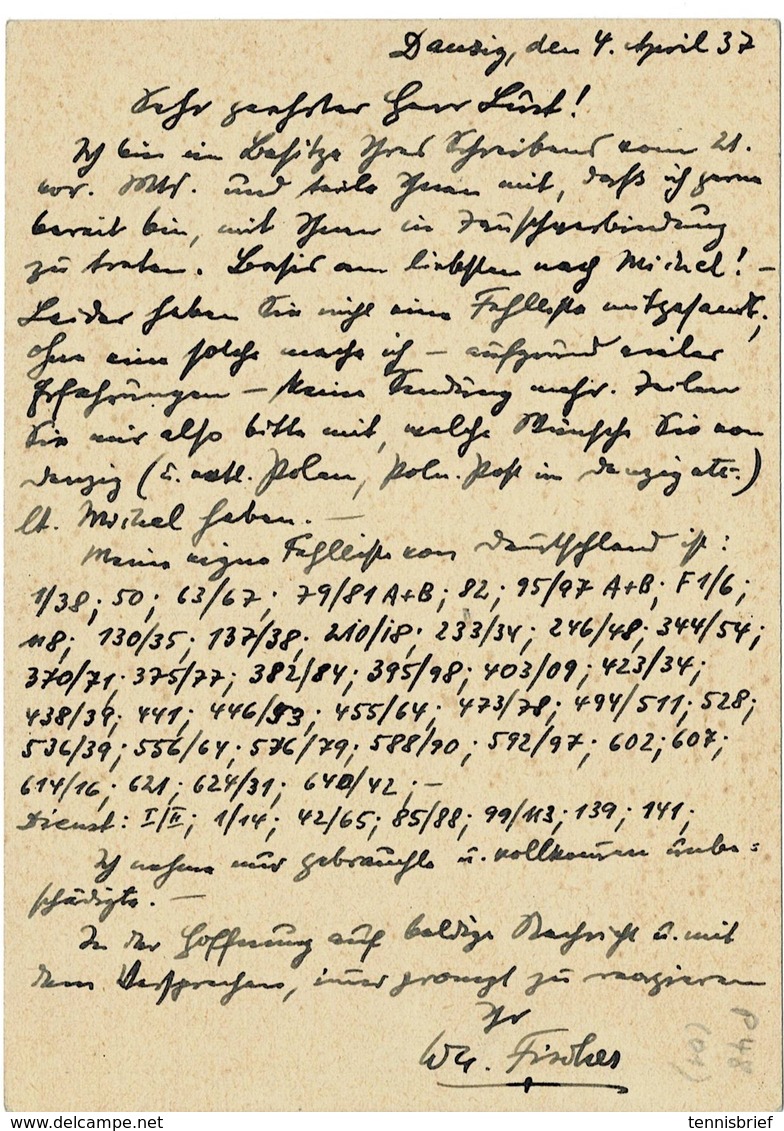 Danzig, den 4. April 37
Sehr geehrter Herr Lüst!
Ich bin im Besitze Ihres Schreibens vom 21.
vor. Mts. und teile Ihnen mit, daß ich gerne
bereit bin, mit Ihnen in Tauschverbindung
zu treten. Basis am liebsten nach Michel! –
Leider haben Sie nicht eine Fehlliste mitgesandt;
ohne eine solche mache ich – aufgrund vieler
Erfahrungen – keine Sendung mehr. Teilen
Sie mir also bitte mit, welche Wünsche Sie von
Danzig (u. evtl. Polen, Poln. Post in Danzig etc.)
lt. Michel haben. –
Meine eigne Fehlliste von Deutschland ist:
1/38; 50; 63/67; 79/81 A+B; 82; 95/97 A+B; F 1/6;
118; 130/35; 137/38; 210/18; 233/34; 246/48; 344/54;
370/71; 375/77; 382/84; 395/98; 403/09; 423/34;
438/39; 441; 446/53; 455/64; 473/78; 494/511; 528;
536/39; 556/64; 576/79; 588/90; 592/97; 602; 607;
614/16; 621; 624/31; 640/42; –
Dienst: I/II; 1/14; 42/65; 85/88; 99/113; 139; 141;
Ich nehme nur gebrauchte u. vollkommen unbe=
schädigte. –
In der Hoffnung auf baldige Nachricht u. mit
dem Versprechen, immer prompt zu reagieren
Ihr
Fischer
P48
(01)
tennisbrief